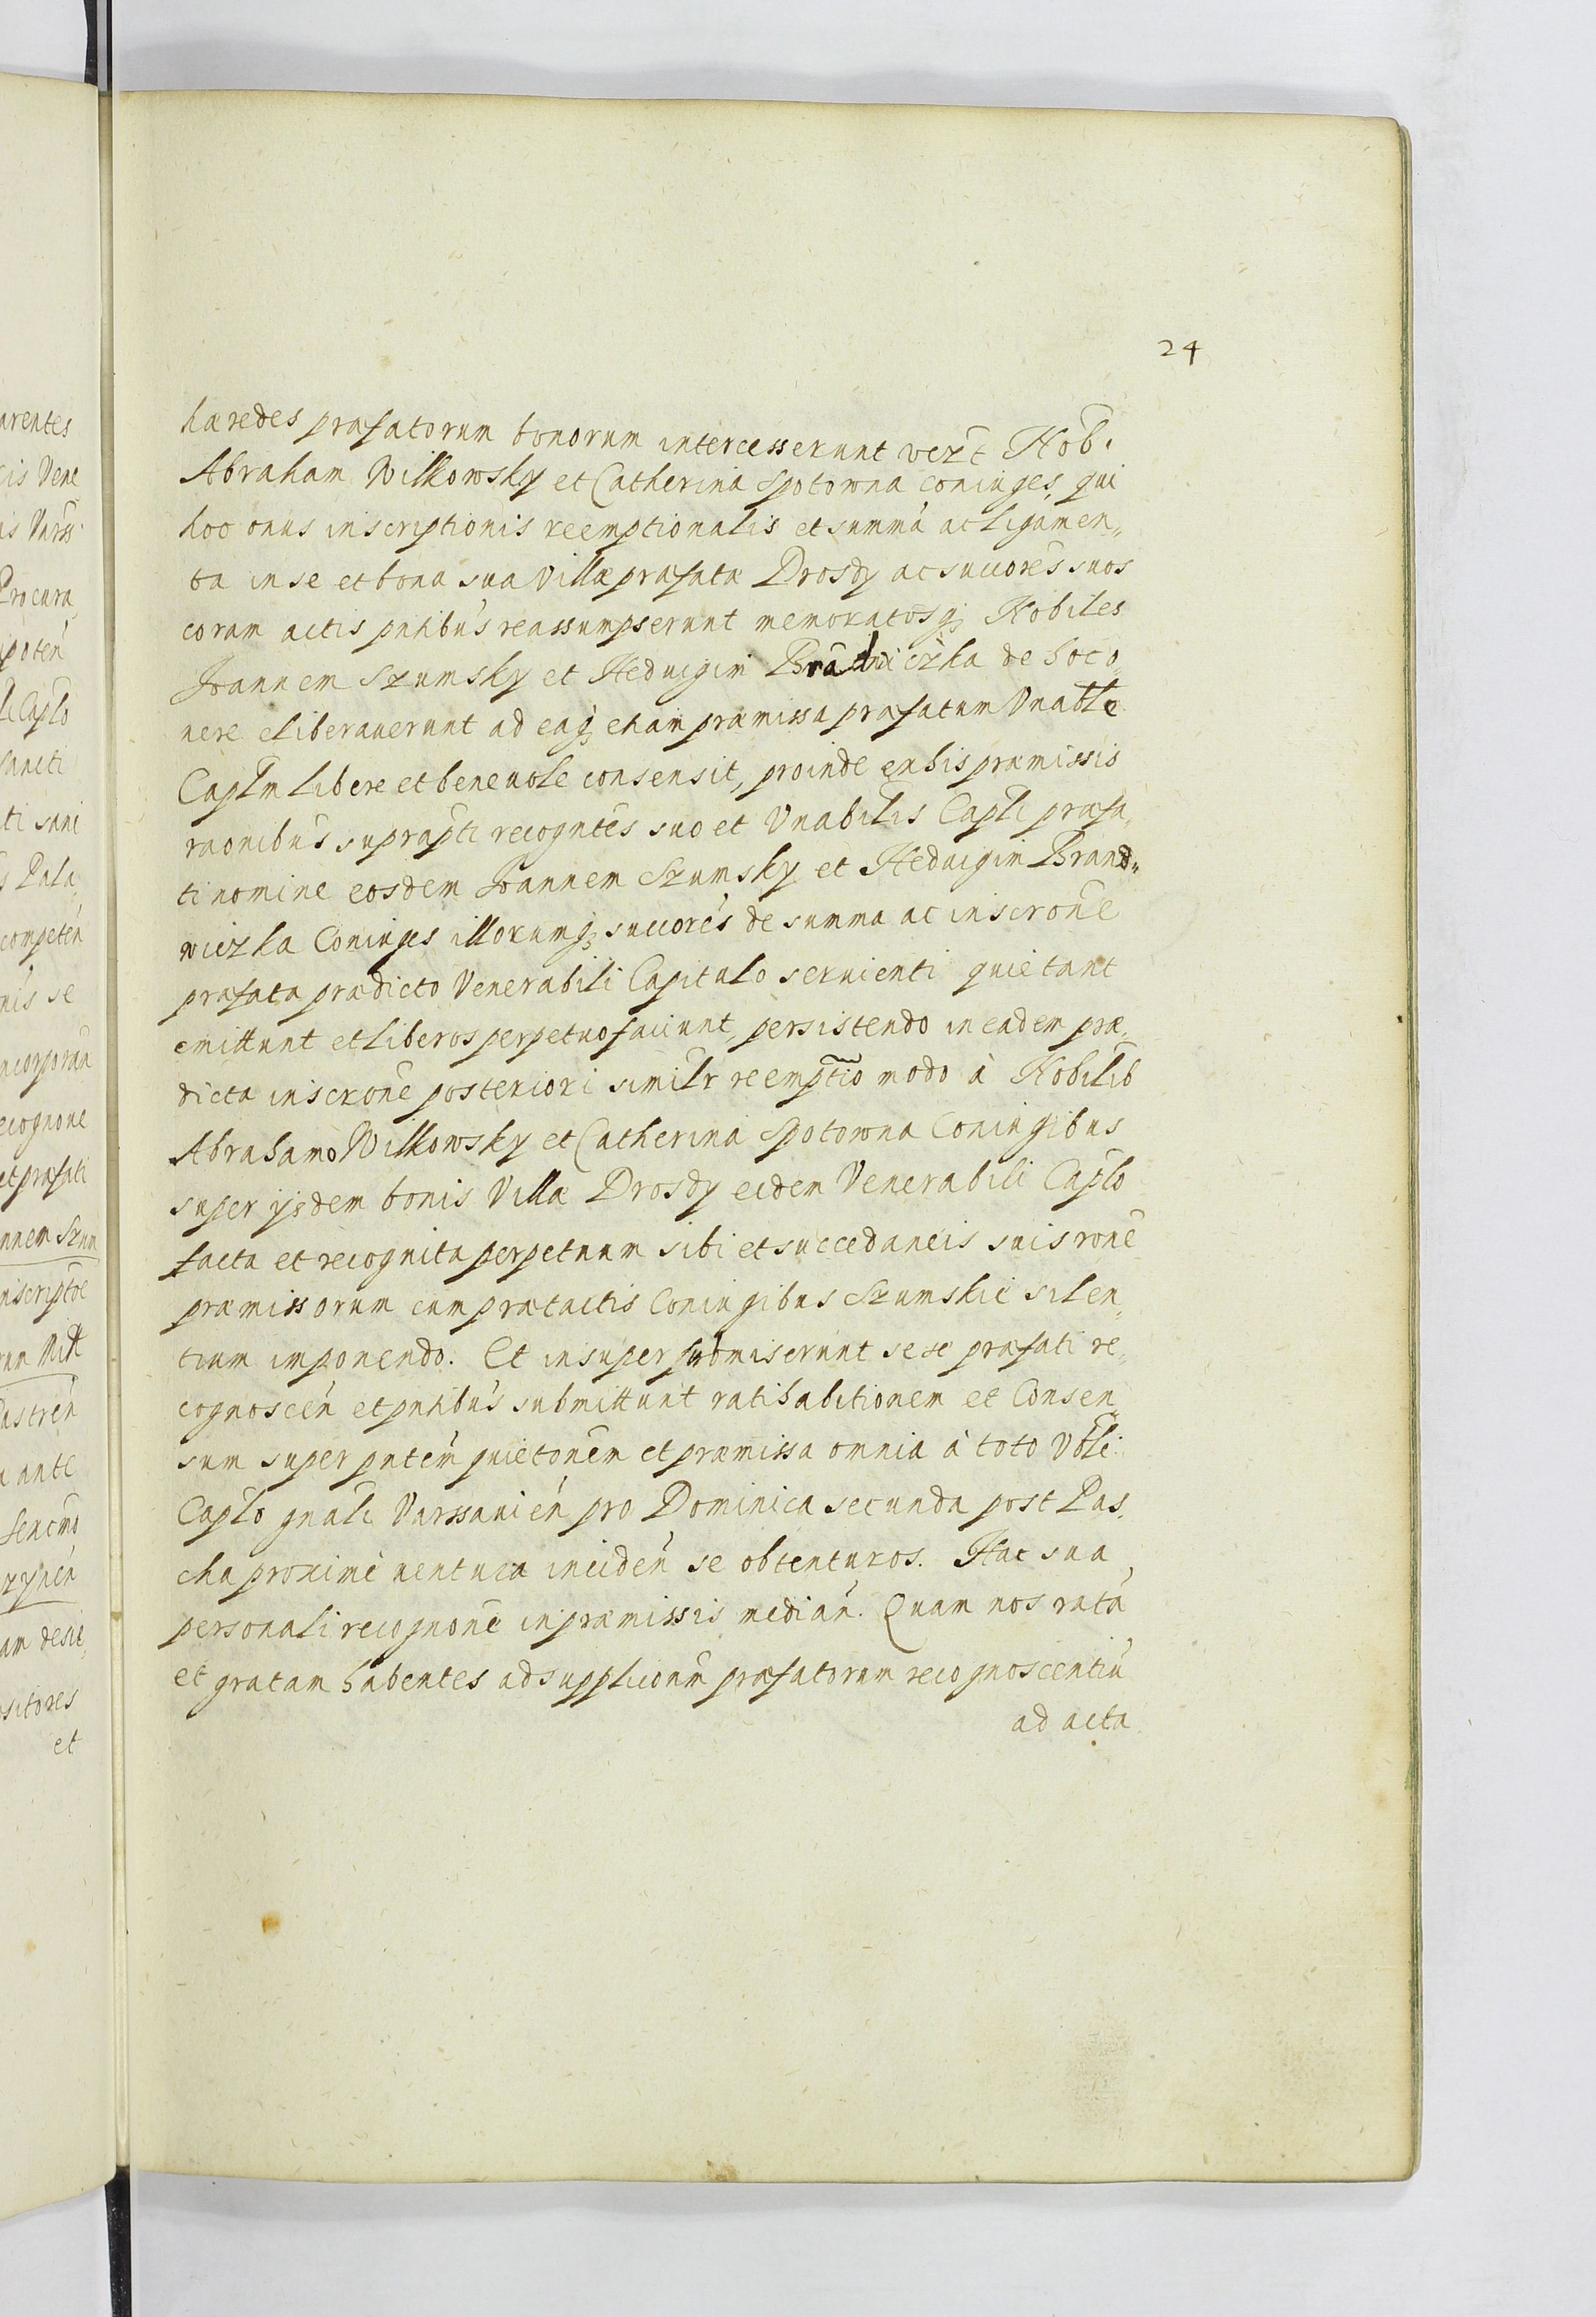 24
hæredes præfatorum bonorum intercesserunt vezt Nob.
Abraham Wilkowsky et Catherina Spotowna coniuges, qui
hoc onus inscriptionis reemptionalis et summa ac ligamen„
ta in se et bona sua Villæ præfatæ Drosdy ac succores suos
coram actis pntibus reassumpserunt memoratosq; Nobiles
Joannem Szumsky et Heduigim de hoc o„
nere eliberauerunt ad eaq; etiam præmissa præfatum Vnable
Caplm libere et beneuole consensit, proinde ex his præmissis
raonibus suprapti recogntes suo et Vnabilis Capli præfa„
ti nomine eosdem Joannem Szumsky et Heduigim Brand„
wiczka Coniuges illorumq; succores de summa ac inscrone
præfata prædicto Venerabili Capitulo seruienti quietant
emittunt et liberos perpetuo faciunt, persistendo in eadem præ„
dicta inscrone posteriori similr reemptio modo à Nobilib
Abrahamo Wilkowsky et Catherina Spotowna Coniugibus
super ijsdem bonis Villæ Drosdy eidem Venerabili Caplo
facta et recognita perpetuum sibi et succedaneis suis rone
præmissorum cum prætactis Coniugibus Szumskie silen„
tium imponendo. Et insuper submiserunt sese præfati re„
cognoscen et pntibus submittunt ratihabitionem et Consen„
sum super pntem quietonem et præmissa omnia à toto Vbli
Caplo gnali Varssauien pro Dominica secunda post Pas„
cha proxime uentura inciden se obtenturos. Hac sua
personali recognone in præmissis median. Quam nos rata
et gratam habentes ad supplicõnm præfatorum recognoscentiu
ad acta
arentes
cis Vene
Procura
poten
li Caplo
sancti
ti sani
Pala
competen
nis se
ncorporan
ecognone
et præfati
nnem Szum
nscriptoe
Castren
a ante
am desie
sitores
et